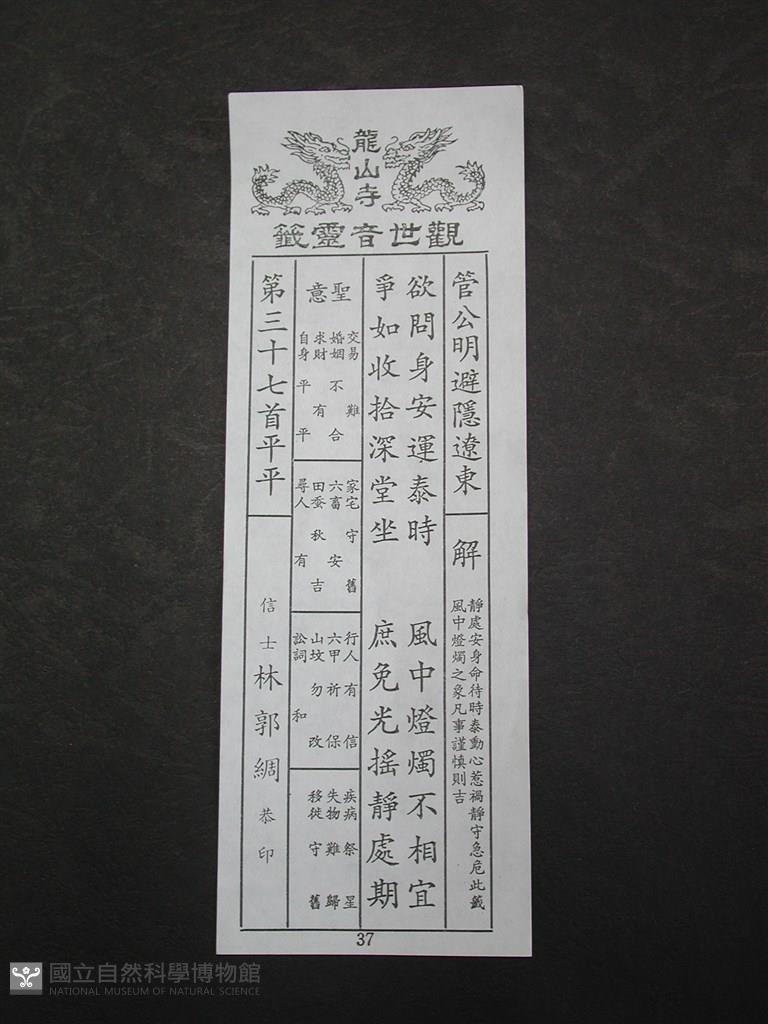 龍山寺
觀世音靈籤
管公明避隱遼東
解
靜處安身命待時泰動心惹禍靜守急危此籤
風中燈燭之象凡事謹慎則吉
欲問身安運泰時 風中燈燭不相宜
爭如收拾深堂坐 庶免光搖靜處期
聖意
交易難
婚姻不合
求財有
自身平平
家宅守舊
六畜安
田蚕秋吉
尋人有
行人有信
六甲祈保
山墳勿改
訟詞和
疾病祭星
失物難歸
移徙守舊
第三十七首平平
信士林郭綢恭印
37
國立自然科學博物館
NATIONAL MUSEUM OF NATURAL SCIENCE